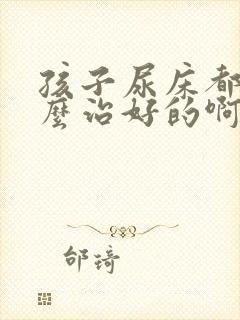 孩子尿床都
麼治好的啊
邰琦